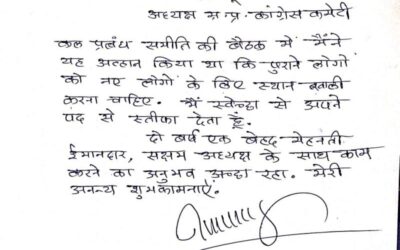 अध्यक्ष म.प्र. कांग्रेस कमेटी
कल प्रबंध समीति की बैठक में मैंने
यह अव्हान किया था कि पुराने लोगों
को नए लोगों के लिए स्थान खाली
करना चाहिए. मैं स्वेच्छा से अपने
पद से स्तीफा देता हूँ.
दो वर्ष एक बेहद मेहनती
ईमानदार, सक्षम अध्यक्ष के साथ काम
करने का अनुभव अच्छा रहा. मेरी
अनन्य शुभकामनाएं.